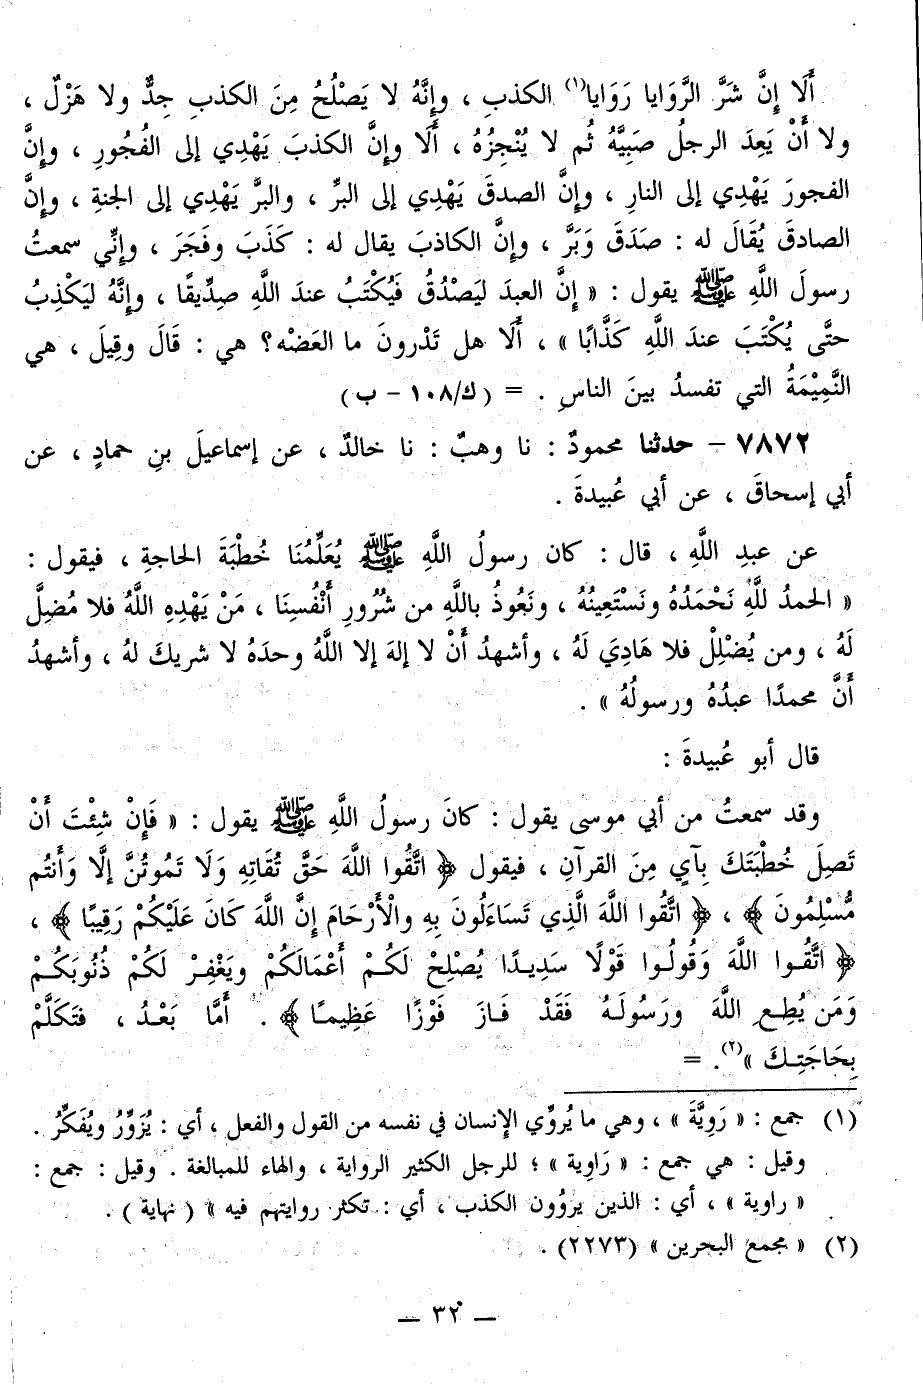 أَلَا إِنَّ شَرَّ الرَّوَايا رَوَايا(١) الكذبِ ، وإِنَّهُ لا يَصْلُحُ مِنَ الكذبِ جِدٌّ ولا هَزْلٌ ،
ولا أَنْ يَعِدَ الرجلُ صَبِيَّهُ ثُم لا يُنْجِزُهُ ، أَلَا وإِنَّ الكذبَ يَهْدِي إلى الفُجُورِ ، وإِنَّ
الفجورَ يَهْدِي إلى النارِ ، وإِنَّ الصدقَ يَهْدِي إلى البرِّ ، والبرَّ يَهْدِي إلى الجنةِ ، وإِنَّ
الصادقَ يُقَالَ له : صَدَقَ وَبَرَّ ، وإنَّ الكاذبَ يقال له : كَذَبَ وفَجَرَ ، وإنِّي سمعتُ
رسولَ اللَّهِ ﷺ يقول : « إِنَّ العبدَ ليَصْدُقُ فَيُكْتَبُ عندَ اللَّهِ صِدِّيقًا ، وإِنَّهُ ليَكْذِبُ
حتَّى يُكْتَبَ عندَ اللَّهِ كَذَّابًا » ، أَلَا هل تَدْرونَ ما العَضْه؟ هي : قَالَ وقِيلَ ، هي
النَّمِيْمَةُ التي تفسدُ بينَ الناسِ . = (ك/١٠٨ - ب)
٧٨٧٢ - حدثنا محمودٌ : نا وهبٌ : نا خالدٌ ، عن إسماعيلَ بنِ حمادٍ ، عن
أبي إسحاقَ ، عن أبي عُبيدةَ .
عن عبدِ اللَّهِ ، قال : كان رسولُ اللَّهِ ﷺ يُعَلِّمُنَا خُطْبَةَ الحاجةِ ، فيقول :
« الحمدُ للَّهِ نَحْمَدُهُ ونَسْتَعِينُهُ ، ونَعُوذُ باللَّهِ من شُرُورِ أَنْفُسِنَا ، مَنْ يَهْدِهِ اللَّهُ فلا مُضِلَّ
لَهُ ، ومن يُضْلِلْ فلا هَادِيَ لَهُ ، وأشهدُ أَنْ لا إلهَ إلا اللَّهُ وحدَهُ لا شريكَ لهُ ، وأشهدُ
أنَّ محمدًا عبدُهُ ورسولُهُ » .
قال أبو عُبيدةَ :
وقد سمعتُ من أبي موسى يقول : كانَ رسولُ اللَّهِ ﷺ يقول : « فَإِنْ شِئْتَ أَنْ
تَصِلَ خُطْبَتَكَ بِآيٍ مِنَ القرآنِ ، فيقول ﴿ اتَّقُوا اللَّهَ حَقَّ تُقَاتِهِ وَلَا تَمُوتُنَّ إلَّا وَأَنتُم
مُّسْلِمُونَ ﴾ ، ﴿ اتَّقُوا اللَّهَ الَّذِي تَسَاءَلُونَ بِهِ والْأَرْحَامَ إِنَّ اللَّهَ كَانَ عَلَيْكُمْ رَقِيبًا ﴾ ،
﴿ اتَّقُـوا اللَّهَ وَقُولُـوا قَوْلًا سَدِيـدًا يُصْلِحْ لَكُـمْ أَعْمَالَكُمْ ويَغْفِـرْ لَكُمْ ذُنُوبَكُـمْ
وَمَن يُطِـعِ اللَّهَ ورَسُولَـهُ فَقَدْ فَـازَ فَوْزًا عَظِيمًـا ﴾ . أَمَّا بَعْـدُ ، فتَكَلَّمْ
بِحَاجَتِـكَ »(٢). =
(١) جمع : « رَوِيَّةَ » ، وهي ما يُروِّي الإِنسان في نفسه من القول والفعل ، أي : يُزَوِّرُ ويُفَكِّرُ .
وقيل : هي جمع : « رَاوِية » ؛ للرجل الكثير الرواية ، والهاء للمبالغة . وقيل : جمع :
« راوية » ، أي : الذين يروُون الكذب ، أي : تكثر روايتهم فيه » ( نهاية ) .
(٢) « مجمع البحرين » (٢٢٧٣) .
— ٣٢ —